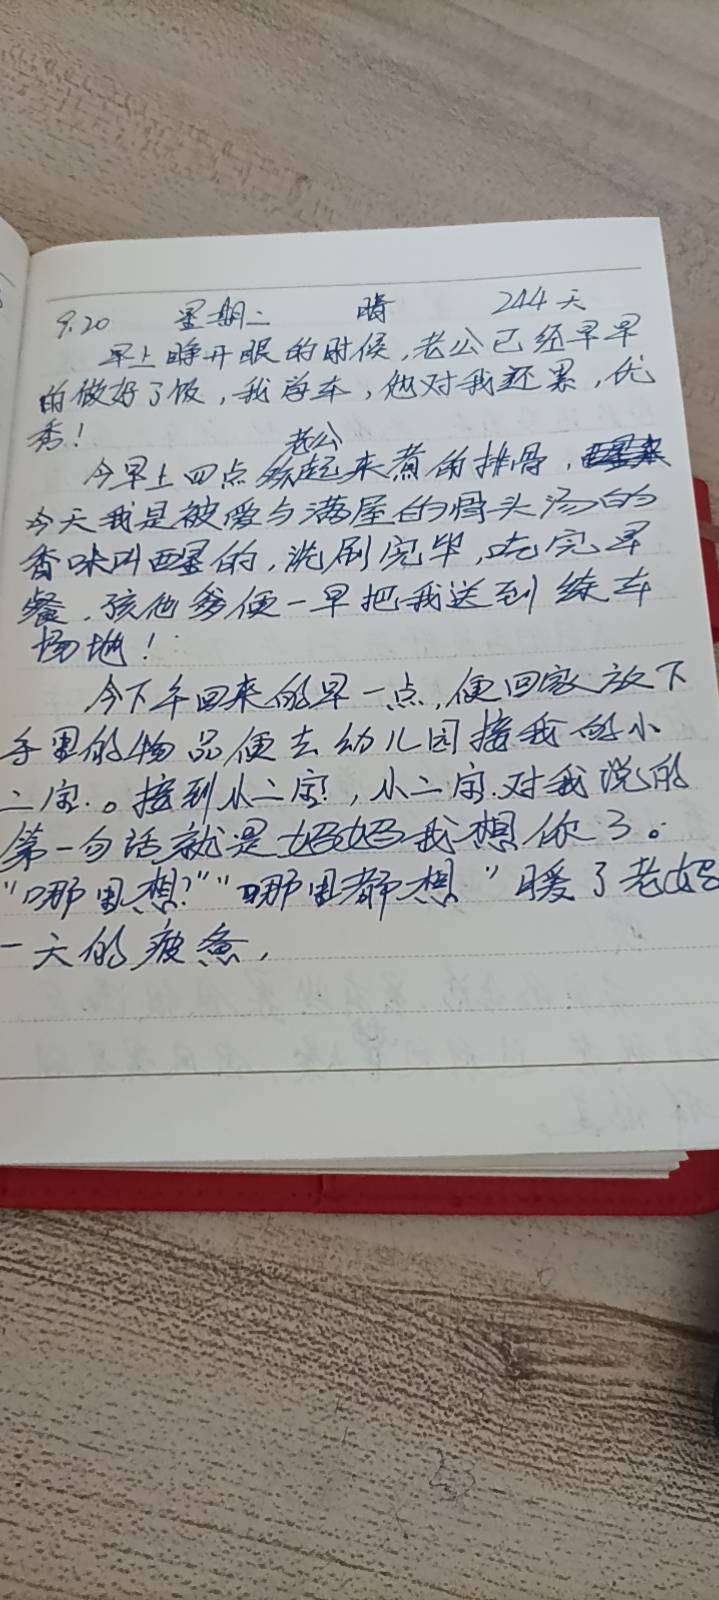 9.20 星期二 晴 244天
早上睁开眼的时候,老公已经早早
的做好了饭,我学车,他对我还累,优
秀!
老公
今早上四点就起来煮的排骨,
今天我是被爱与满屋的骨头汤的
香味叫醒的,洗刷完毕,吃完早
餐,孩他爹便一早把我送到练车
场地!
今下午回来的早一点,便回家放下
手里的物品便去幼儿园接我的小
二宝.。接到小二宝!,小二宝.对我说的
第一句话就是妈妈我想你了。
“哪里想?”“哪里都想”暖了老妈
一天的疲惫,